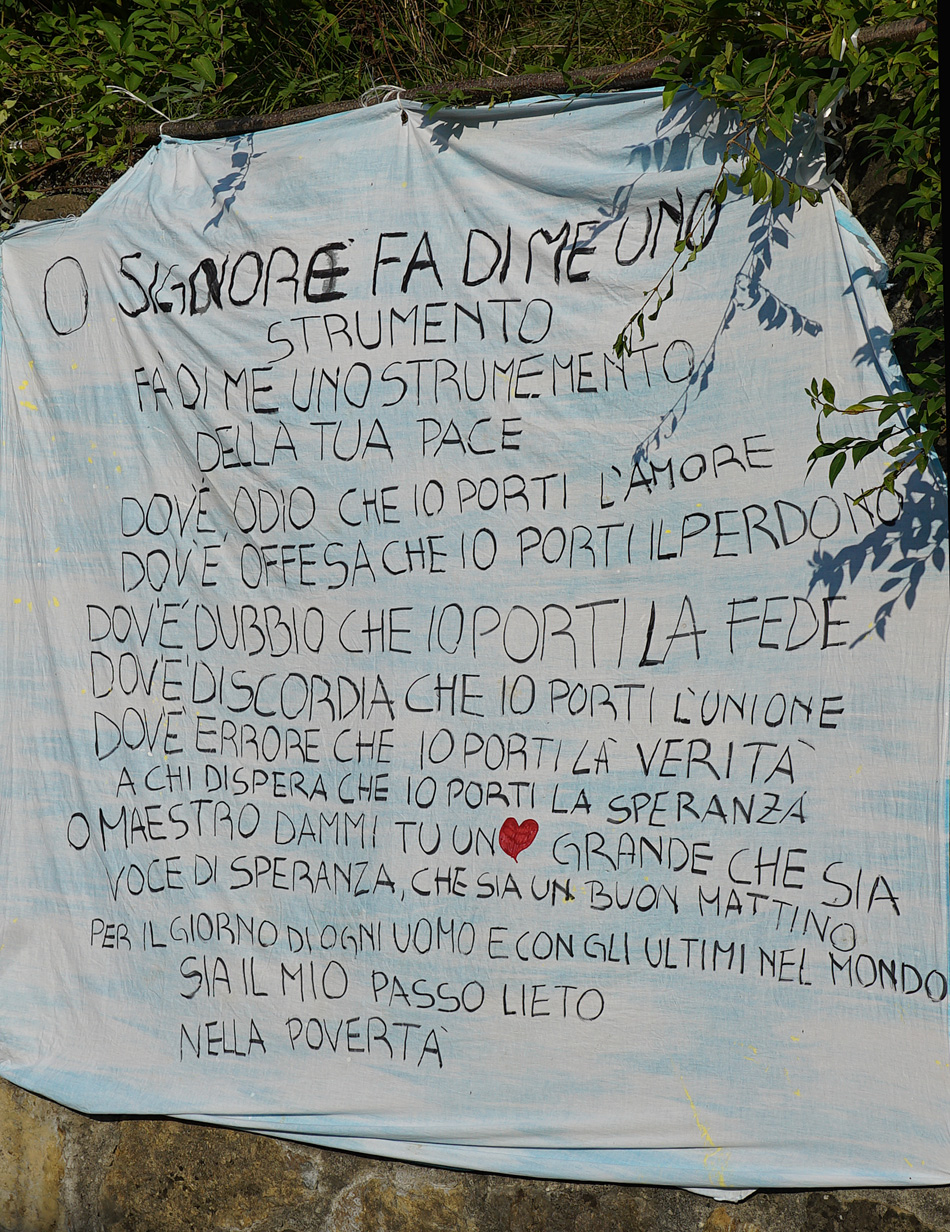 O SIGNORE FA DI ME UNO
STRUMENTO
FA DI ME UNO STRUMEMENTO
DELLA TUA PACE
DOV'È ODIO CHE IO PORTI L'AMORE
DOV'È OFFESA CHE IO PORTI IL PERDONO
DOV'È DUBBIO CHE IO PORTI LA FEDE
DOV'È DISCORDIA CHE IO PORTI L'UNIONE
DOV'È ERRORE CHE IO PORTI LA VERITÀ
A CHI DISPERA CHE IO PORTI LA SPERANZA
O MAESTRO DAMMI TU UN ❤ GRANDE CHE SIA
VOCE DI SPERANZA, CHE SIA UN BUON MATTINO
PER IL GIORNO DI OGNI UOMO E CON GLI ULTIMI NEL MONDO
SIA IL MIO PASSO LIETO
NELLA POVERTÀ